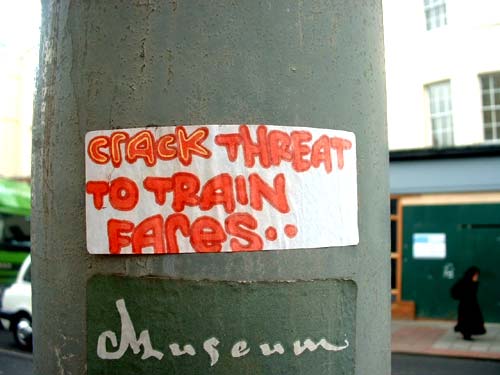 CrACK THREAT
TO TRAIN
FAreS..
Museum